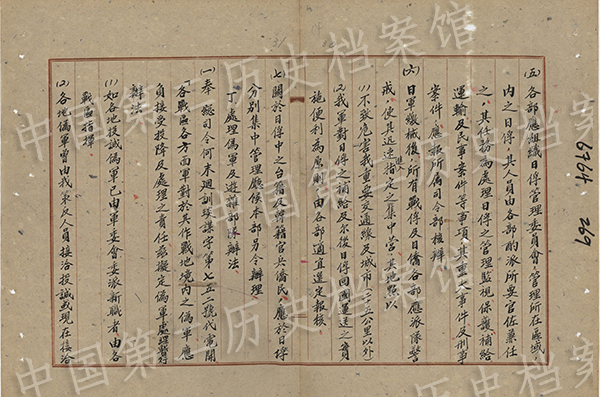 (五)各部應組織日俘管理委員會管理所在區域
內之日俘，其人員由各部酌派所要官佐兼任
之，其任務為處理日俘之管理監視保護補給
運輸及民事案件等事項，其重大事件及刑事
案件應報所屬司令部核辦
(六)日軍繳械後，所有戰俘及日僑各部應派隊警
戒，使其迅速指定之集中營，其地點以
(1)不致危害我重要交通線及城市(二五公里以外)
(2)我軍對日俘之補給及尔後日俘回國運送之實
施便利為原則由各部適宜選定報核
(七)關於日俘中之台籍及韓籍官兵僑民，應於日俘
分別集中管理應候本部另令辦理
丁、處理偽軍及游雜部隊辦法
(一)奉 總司令何 代電開
各戰區各方面軍對於其作戰地境內之偽軍應
負接受投降及處理之責任茲擬定偽軍處理暫行
辦法
(1)如各地投誠偽軍已由軍委會委派新職者由各
戰區指揮
(2)各地偽軍曾由我策反人員接洽投誠或現在接洽
6764
269
中国第二历史档案馆